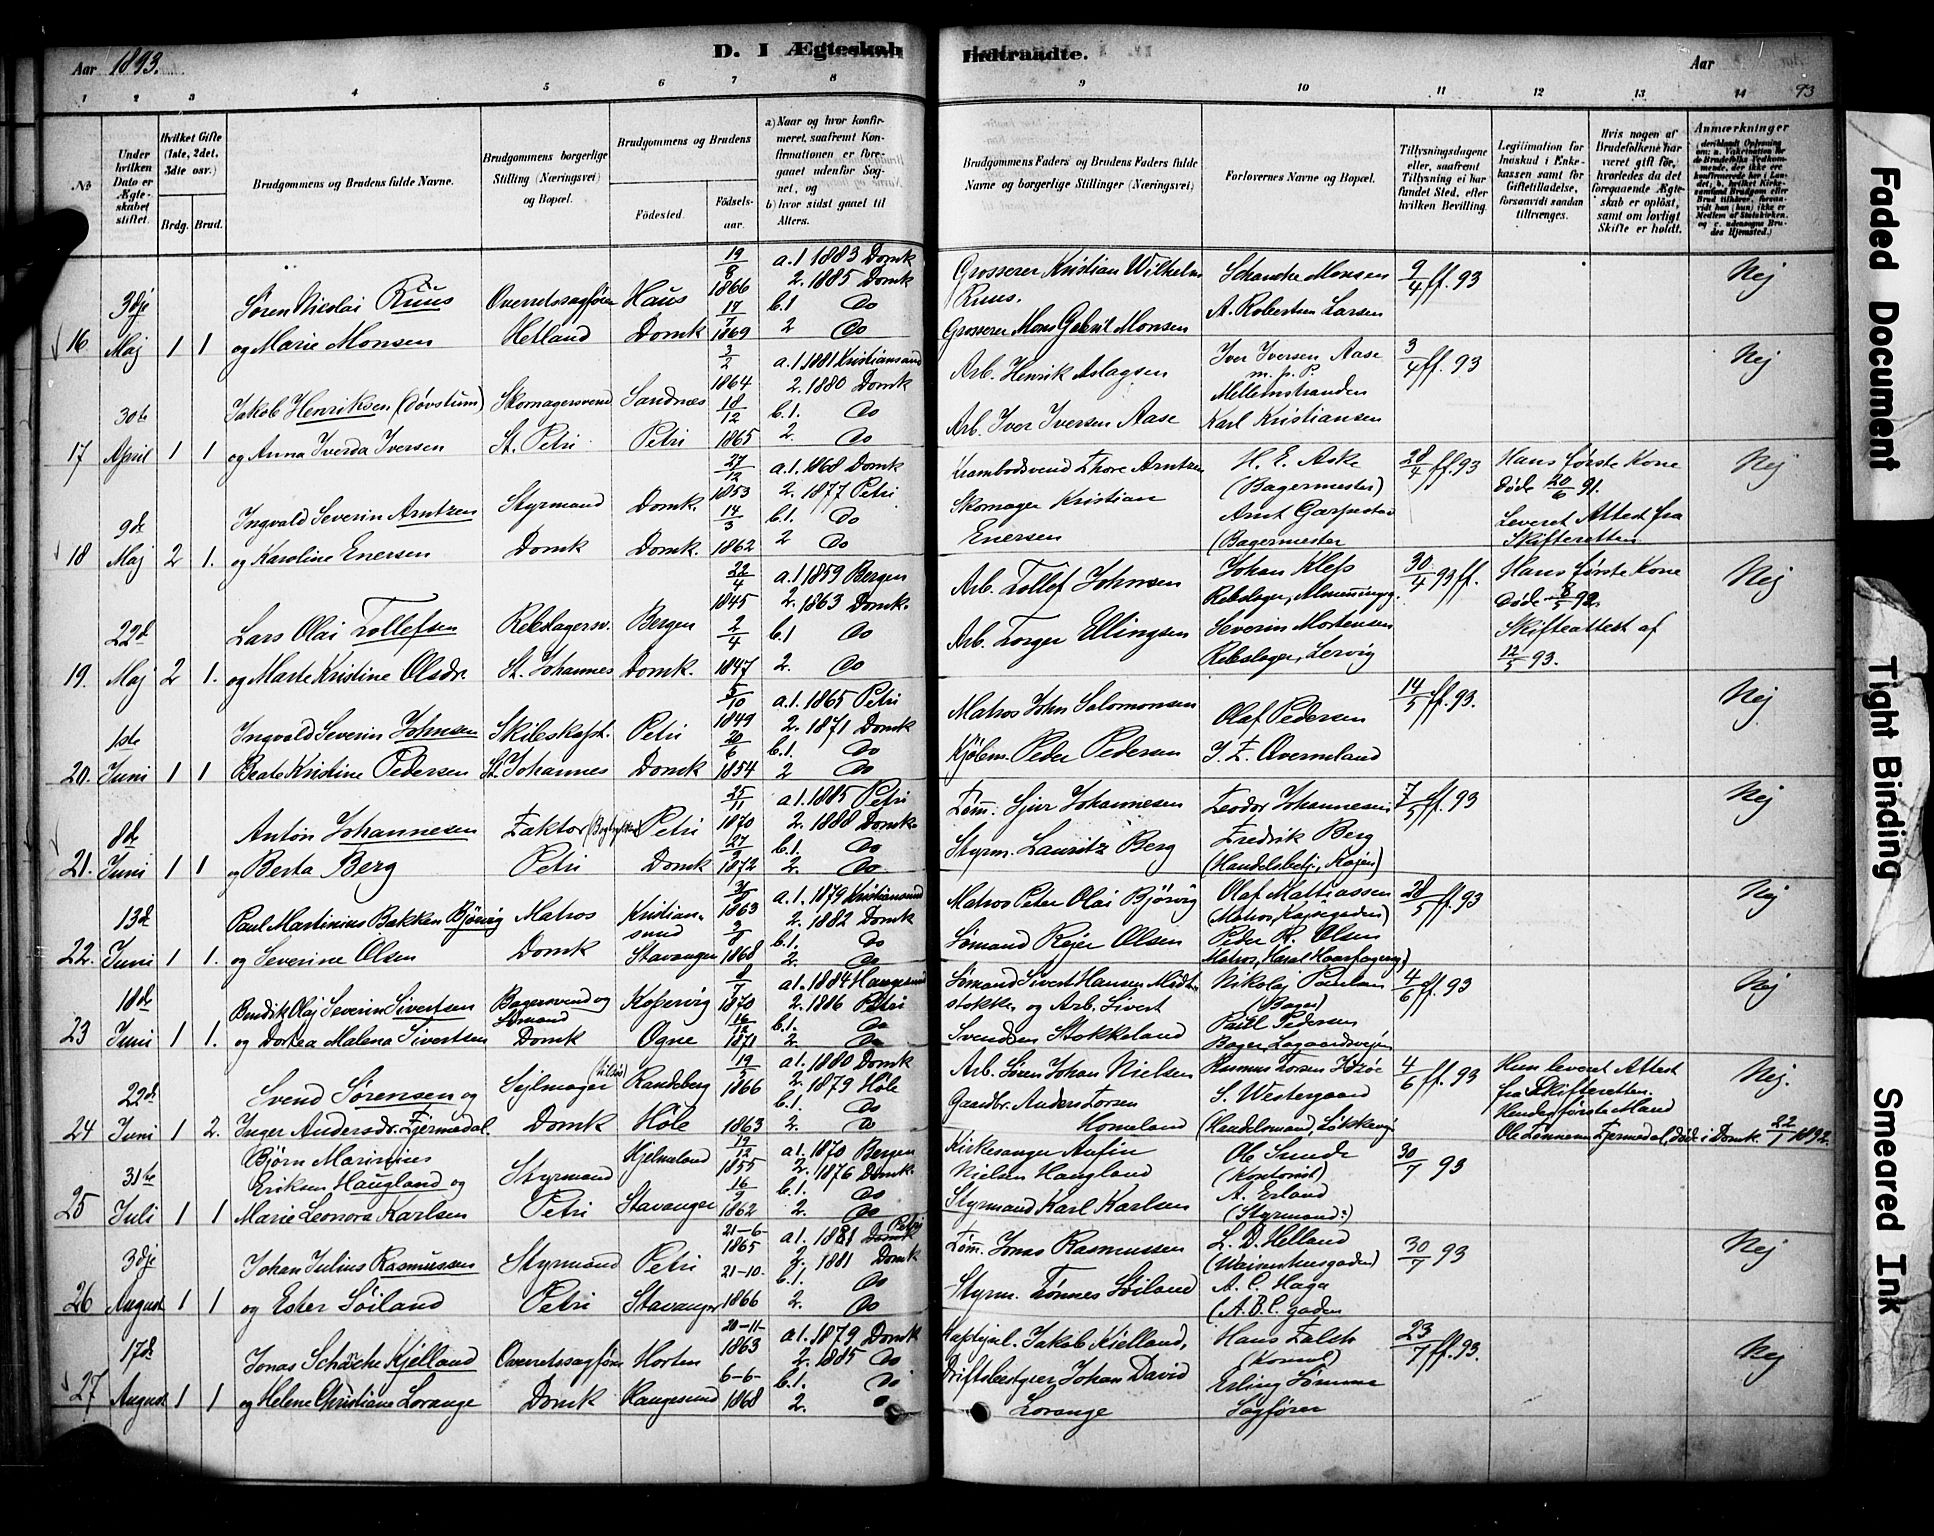 Aar 1893.
D. I Ægteskab Indtraadte.
Aar
93
1 2 3 4 5 6 7 8 9 10 11 12 13 14
No
Under hvilken Dato er Ægteskabet stiftet.
Hvilket Gifte (1ste, 2det, 3die osv.)
Brdg. Brud.
Brudgommens og Brudens fulde Navne.
Brudgommens borgerlige Stilling (Næringsvei) og Bopæl.
Brudgommens og Brudens
Fødested.
Fødselsaar.
a) Naar og hvor konfirmeret, saafremt Konfirmationen er foregaaet udenfor Sognet, og
b) hvor sidst gaaet til Alters.
Brudgommens Faders og Brudens Faders fulde Navne og borgerlige Stillinger (Næringsvei)
Forlovernes Navne og Bopæl.
Tillysningsdagene eller, saafremt Tillysning ei har fundet Sted, efter hvilken Bevilling.
Legitimation for Indskud i Enkekassen samt for Giftetilladelse, forsaavidt saadan tiltrænges.
Hvis nogen af Brudefolkene har været gift før, hvorledes da det foregaaende Ægteskab er opløst, samt om lovligt Skifte er holdt.
Anmærkninger
16 3dje Maj 1 1 Søren Nicolai Ruus og Marie Monsen
Overretssagfører Hetland
Haus Domk
19/8 1866 17/7 1869
a.1 1883 Domk 2. 1885 Domk b.1 Do 2 Do
Grosserer Kristian Wilhelm Ruus. Grosserer Mons Gabriel Monsen
Schancke Monsen A. Robertsen Larsen
9/4 ff. 93
Nej
17 30te April 1 1 Jakob Henriksen (Døvstum) og Anna Iverda Iversen
Skomagersvend St. Petri
Sandnes Petri
3/2 1864 18/12 1865
a.1. 1881 Kristiansand 2. 1880 Domk b.1. Do 2. Do
Arb. Henrik Aslagsen Arb. Iver Iversen Aase
Iver Iversen Aase m.p.P. Mellemstranden Karl Kristiansen
3/4 ff. 93
Nej
18 9de Maj 2 1. Ingvald Severin Arntzen og Karoline Enersen
Styrmand Domk
Domk. Domk.
27/12 1853 14/3 1862
a.1. 1868 Domk 2. 1877 Petri b.1. Do 2 Do
Krambodsvend Thore Arntzen Skomager Kristian Enersen
H. E. Aske (Bagermester) Arnt Garpestad (Bagermester
28/4 ff. 93
Hans første Kone døde 20/6 91. Leveret Attest fra Skifteretten
Nej
19. 22d Maj 2 1. Lars Olai Tollefsen og Marte Kristine Olsdr.
Rebslagersv. St. Johannes
Bergen Domk.
22/4 1845 2/4 1847
a.1 1859 Bergen 2. 1863 Domk. b.1 Do 2. Do
Arb. Tollef Johnsen Arb. Torger Ellingsen
Johan Kless Rebslager, Almenningg. Severin Mortensen Rebslager, Lervig
30/4 93 ff.
Hans første Kone døde 8/5 92. Skifteattest af 12/5 93.
Nej
20. 1ste Juni 1 1 Ingvald Severin Johnsen Beate Kristine Pedersen
St. Johannes
Petri Domk
5/10 1849 20/6 1854
a.1. 1865 Petri 2. 1871 Domk b.1. Do 2 Do
Matros John Salomonsen Kjøbm. Peder Pedersen
Olaf Pedersen
14/5 ff. 93.
Nej
21. 8de Juni 1 1 Anton Johannesen og Berta Berg
Faktor Petri
Petri Domk
25/11 1870 27/9 1872
a.1. 1885 Petri 2. 1888 Domk. b.1. Do 2. Do
Tøm. Sjur Johannesen Styrm. Lauritz Berg
Teodor Johannesen Fredrik Berg (Handelsbetj., Kajen)
7/5 ff. 93
Nej
22. 13de Juni 1 1. Paul Martinius Bakken Bjørvig og Severine Olsen
Matros Domk
Kristiansund Stavanger
1863 1868
a.1. 1879 Kristiansund 2. 1882 Domk b.1. Do 2. Do
Matros Peter Olai Bjørvig Sømand Rejer Olsen
Olaf Mattiassen (Matros, Kapsegaden) Peder R. Olsen Matros, Haral Haarfagersg.)
28/5 ff. 93
Nej
23 18de Juni 1 1. Bendik Olaj Severin Sivertsen og Dortea Malena Sivertsen
Bagersvend og Sømand Domk
Kopervig Ogne
8/7 1870 1871
a1. 1884 Haugesund 2. 1886 Petri b.1. Do 2. Do
Sømand Sivert Hansen Midtstokke og Arb. Sivert Svendsen Stokkeland
Nikolaj Paulsen (Bager) Paul Pedersen Bager, Lagaardsvejen
4/6 ff. 93
Nej
24 22de Juni 1 2. Svend Sørensen og Inger Andersdr. Fjermedal.
Sejlmager Domk
Randeberg Høle
1866 1863
a1. 1880 Domk 2. 1879 Høle b.1. Do 2. Do
Arb. Søren Johan Nielsen Gaardbr. Anders Torsen Homeland
S. Westergaard (Handelsmand, Løkkevej
4/6 ff. 93
Hun leveret Attest fra Skifteretten. Hendes første Mand Ole Tønnesen Fjermedal, døde i Domk. 22/1 1892.
Nej.
25 31te Juli 1 1 Bjørn Marinius Eriksen Haugland og Marie Leonora Karlsen
Styrmand Petri
Hjelmeland Stavanger
19/12 1855 16/9 1862
a1. 1870 Bergen 2. 1876 Domk b.1. Do 2. Do
Kirkesanger Anfin Nielsen Haugland Styrmand Karl Karlsen
Ole Sunde (Kontorist) A. Erland (Styrmand:)
30/7 93
26 3dje August 1 1 Johan Julius Rasmussen og Ester Søiland
Styrmand Petri
Petri Stavanger
21-6- 1865 21-10- 1866
a1. 1881 Petri 2. 1881 Domk b.1. Do 2. Do
Tøm. Jonas Rasmussen Styrm. Tønnes Søiland
L. D. Helland (Waisenhusgaden) A. C. Haga (A.B.C. gaden
30/7 93
Nej
27 17de August 1 1 Jonas Schancke Kjelland og Helene Christiane Lorange
Overretssagfører Domk
Horten Haugesund
20-11- 1863 6-6- 1868
a1. 1879 Domk 2. 1885 Do b.1. Do 2. Do
Jakob Kielland, Driftsbestyrer Johan David Lorange
Hans Falck (Konsul) Erling Sømme Sagfører
23/7 ff. 93.
Nej
Faded Document
Tight Binding
Smeared Ink